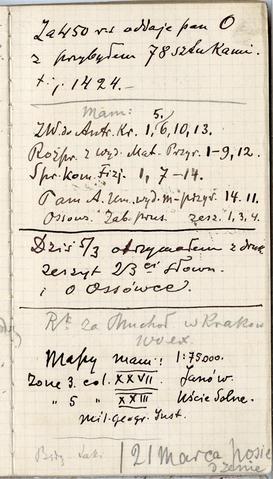 Za 450 rs oddaje pan O
z przybyłem 78 sztukami.
t.j. 1424.—
Mam: 5.
ZW. do Antr. Kr. 1, 6, 10, 13.
Rozpr. z wyd. Mat. Przyr. 1-9, 12.
Spr. kom. Fizj. 1, 7-14.
Pam A. Um. wyd. m-przyr. 14. 11.
Ossows. Zab. prus. zesz. 1, 3, 4.
Dziś 5/3 otrzymałem z druk.
zeszyt 2/3 ci Słown.
i o Ossówce.
za w Krakow
100 ex.
Mapy mam: 1:75000.
Zone 3. col. XXVII. Janów.
" 5 " XXIII Uście Solne.
Mil. geogr. Inst.
21 Marca posie
dzenie